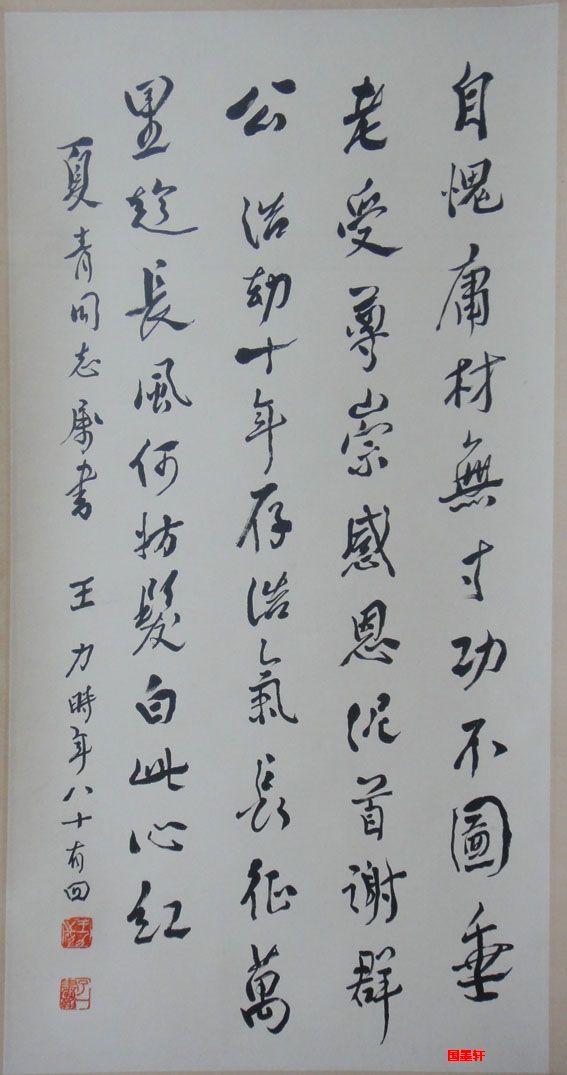 自愧庸材無寸功不圖垂
老受尊崇感恩泥首謝群
公浩劫十年存浩氣長征萬
里趁長風何妨髮白此心紅
夏青同志属書 王力時年八十有四
国墨轩